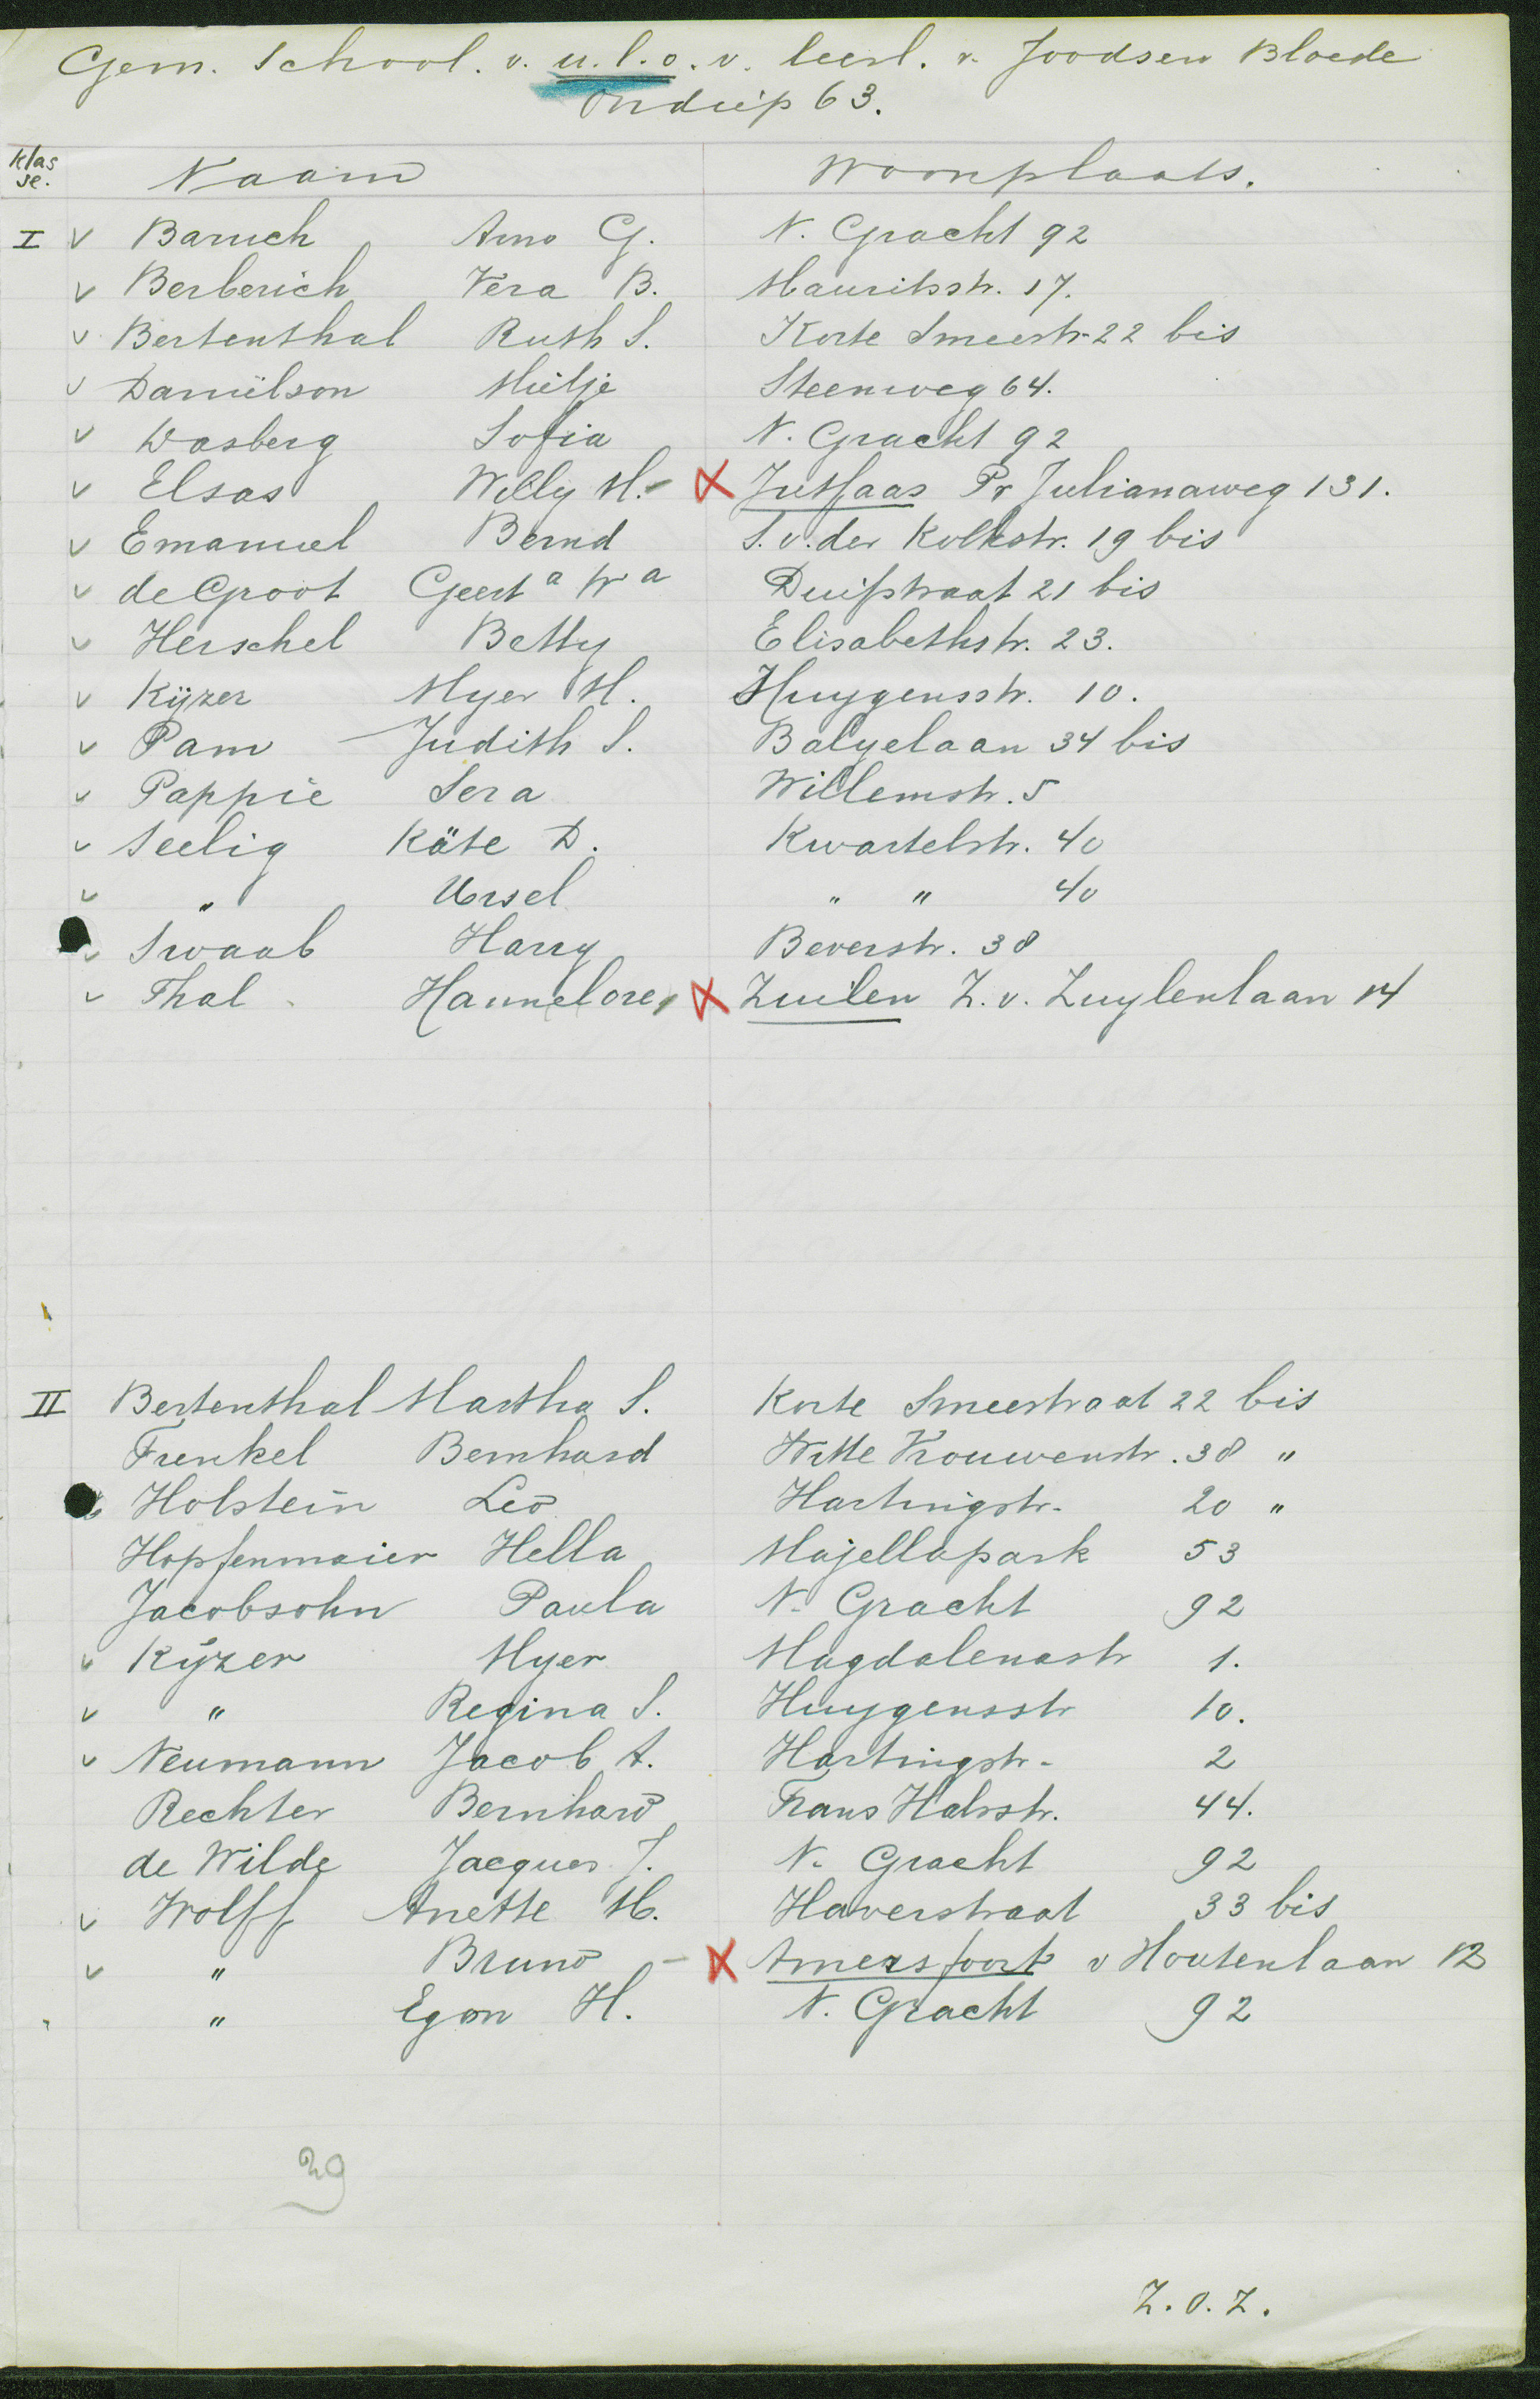 Gem. School. v. u.l.o. v. leerl. v. Joodsen Bloede
Ondiep 63.
klas se. Naam Woonplaats.
I v Baruch Arno G. N. Gracht 92
v Berberich Vera B. Mauritsstr. 17.
v Bertenthal Ruth S. Korte Smeestr. 22 bis
v Daniëlson Mietje Steenweg 64.
v Dasberg Sofia N. Gracht 92
v Elsas Willy M. - X Jutfaas Pr Julianaweg 131.
v Emanuel Bernd S. v. der Kolkstr. 19 bis
v de Groot Geert a W a Duifstraat 21 bis
v Herschel Betty Elisabethstr. 23.
v Kijzer Myer M. Huygensstr. 10.
v Pam Judith S. Balyelaan 34 bis
v Pappie Sera Willemstr. 5
v Seelig Käte D. Kwartelstr. 40
v " Ursel " " 40
v Swaab Harry Beverstr. 38
v Thal Hannelore, X Zuilen Z. v. Zuylenlaan 14
II Bertenthal Martha S. Korte Smeestraat 22 bis
Frenkel Bernhard Witte Vrouwenstr. 38 "
Holstein Leo Hartingstr. 20 "
Hopfenmaier Hella Majellapark 53
Jacobsohn Paula N. Gracht 92
v Kijzer Myer Magdalenastr 1.
v " Regina S. Huygensstr 10.
v Neumann Jacob A. Hartingstr. 2
Rechter Bernhard Frans Halsstr. 44.
de Wilde Jacques J. N. Gracht 92
v Wolff Anette M. Haverstraat 33 bis
v " Bruno - X Amersfoort v Houtenlaan 12
" Egon H. N. Gracht 92
29
Z.O.Z.